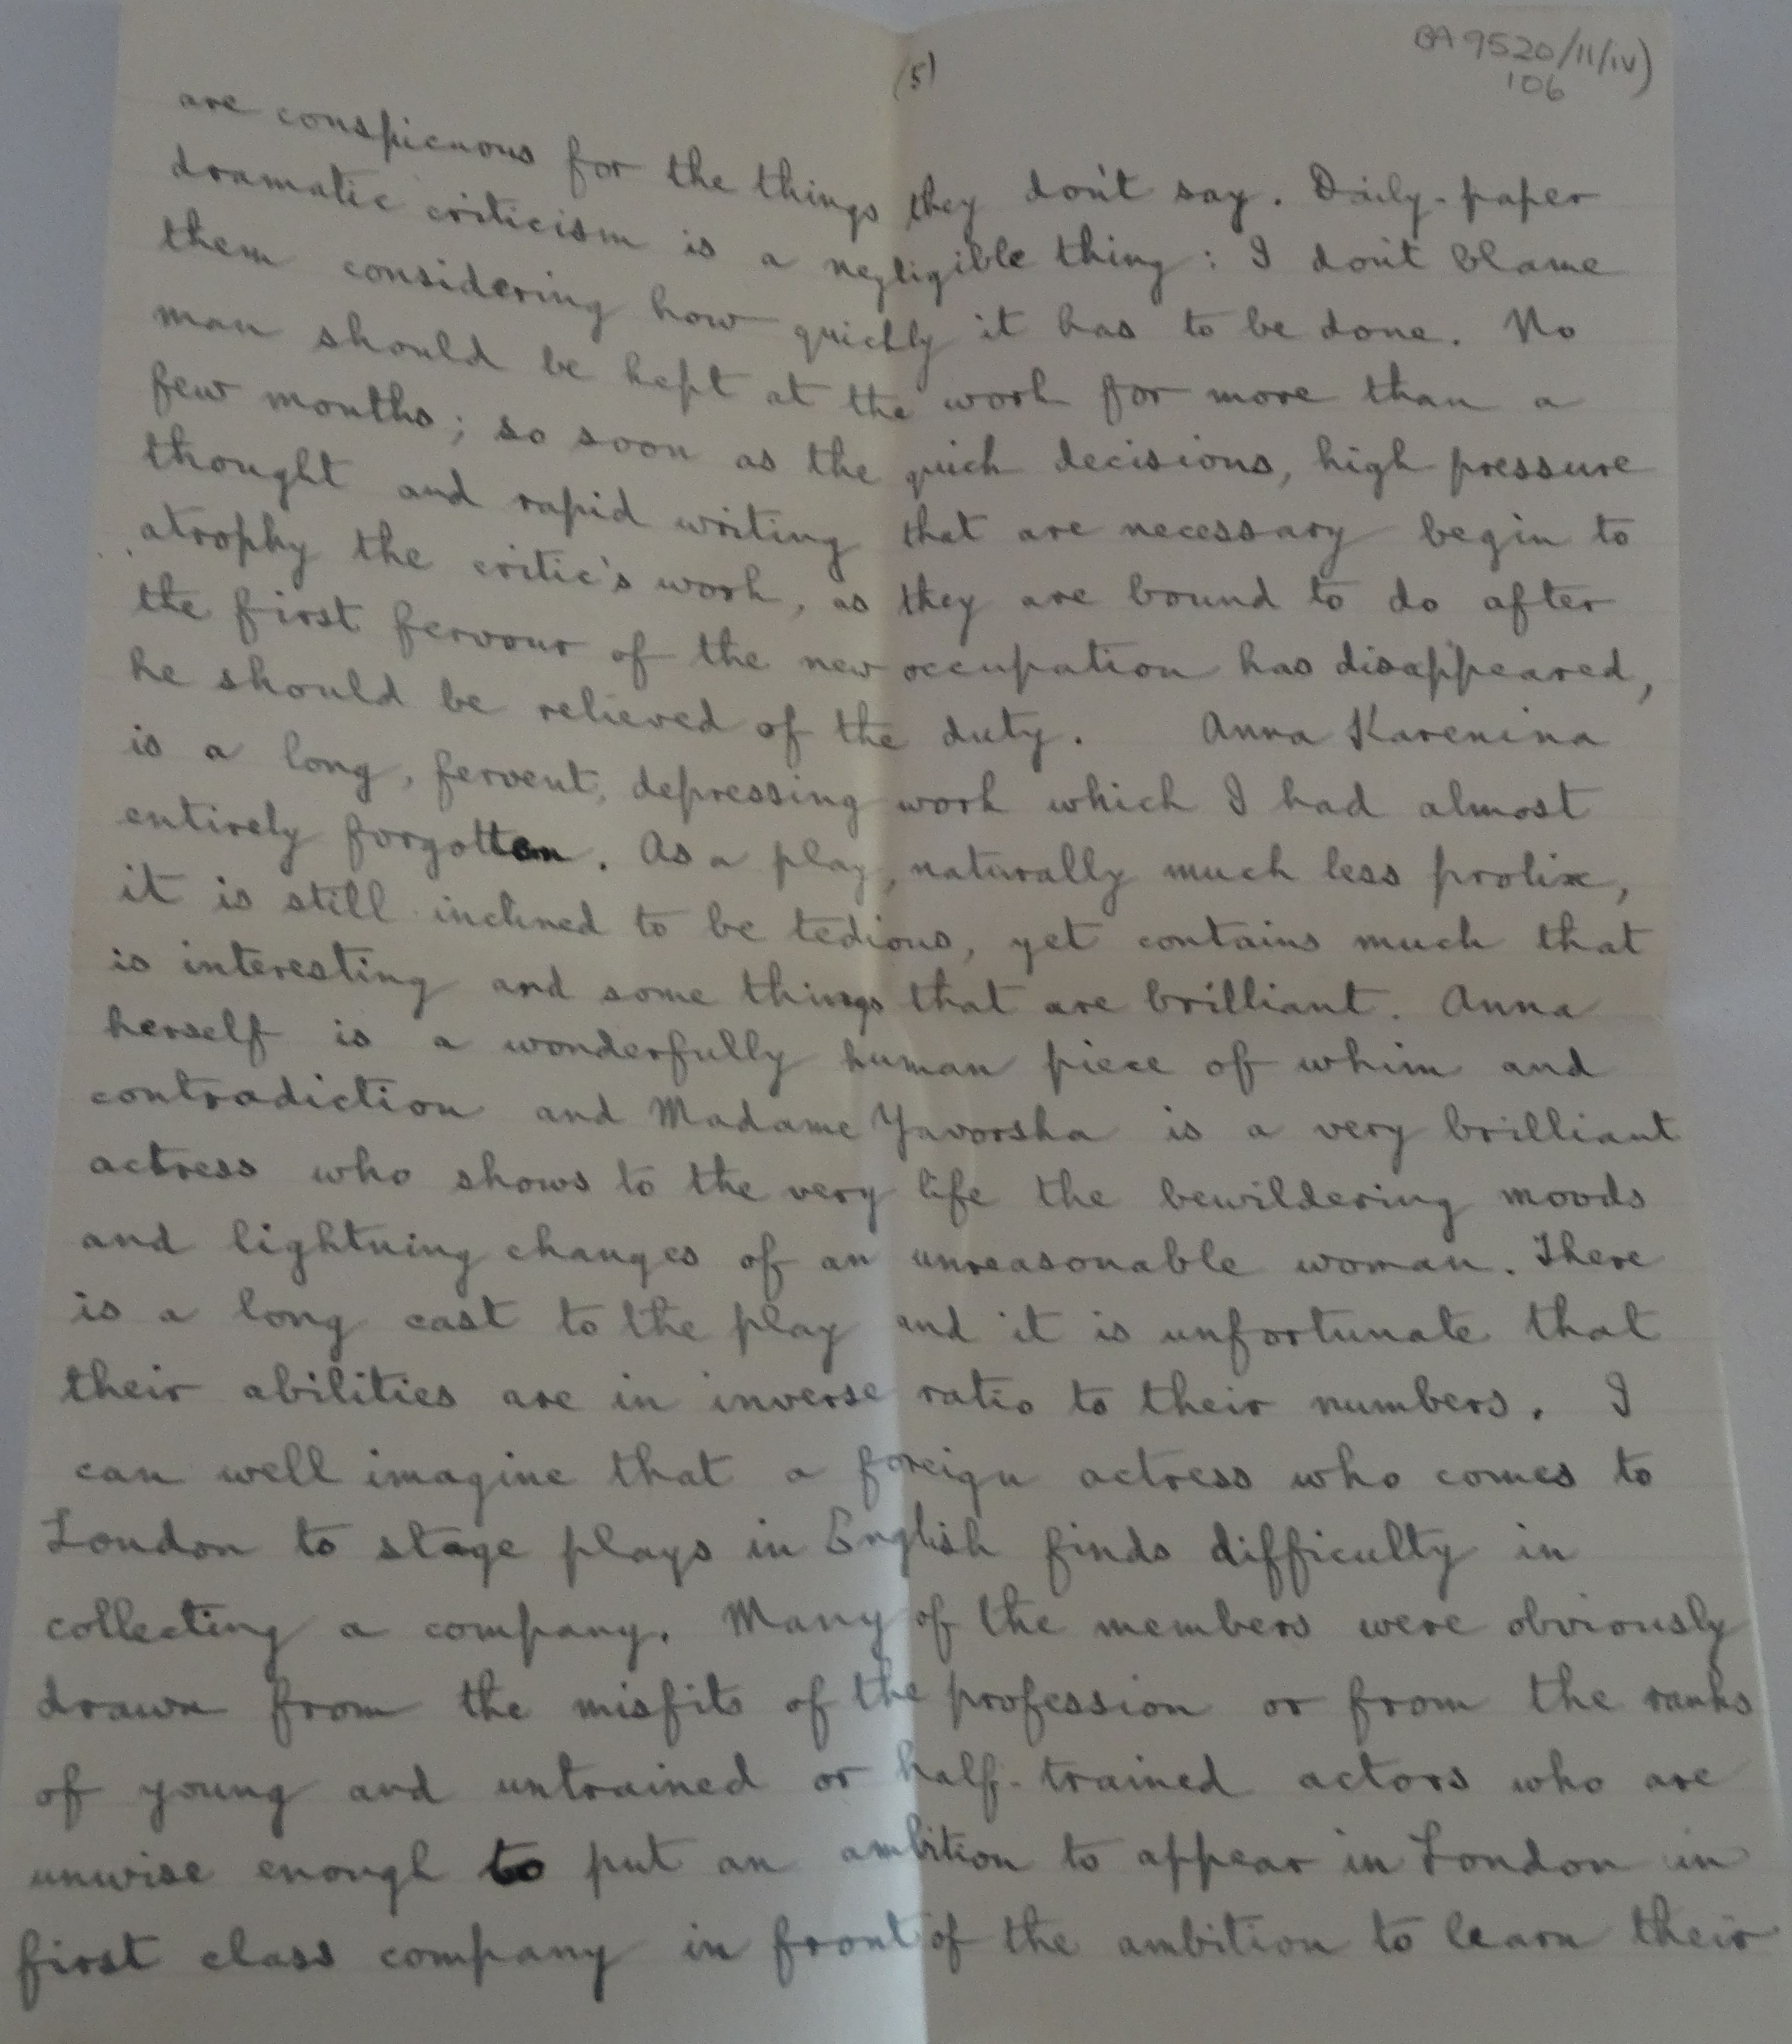 (5)
BA 9520/11/iv)
106
are conspicuous for the things they don't say. Daily-paper
dramatic criticism is a negligible thing: I don't blame
them considering how quickly it has to be done. No
man should be kept at the work for more than a
few months; so soon as the quick decisions, high pressure
thought and rapid writing that are necessary begin to
atrophy the critic's work, as they are bound to do after
the first fervour of the new occupation has disappeared,
he should be relieved of the duty. Anna Karenina
is a long, fervent, depressing work which I had almost
entirely forgotten. As a play, naturally much less prolix,
it is still inclined to be tedious, yet contains much that
is interesting and some things that are brilliant. Anna
herself is a wonderfully human piece of whim and
contradiction and Madame Yavorska is a very brilliant
actress who shows to the very life the bewildering moods
and lightning changes of an unreasonable woman. There
is a long cast to the play and it is unfortunate that
their abilities are in inverse ratio to their numbers. I
can well imagine that a foreign actress who comes to
London to stage plays in English finds difficulty in
collecting a company. Many of the members were obviously
drawn from the misfits of the profession or from the ranks
of young and untrained or half-trained actors who are
unwise enough to put an ambition to appear in London in
first class company in front of the ambition to learn their